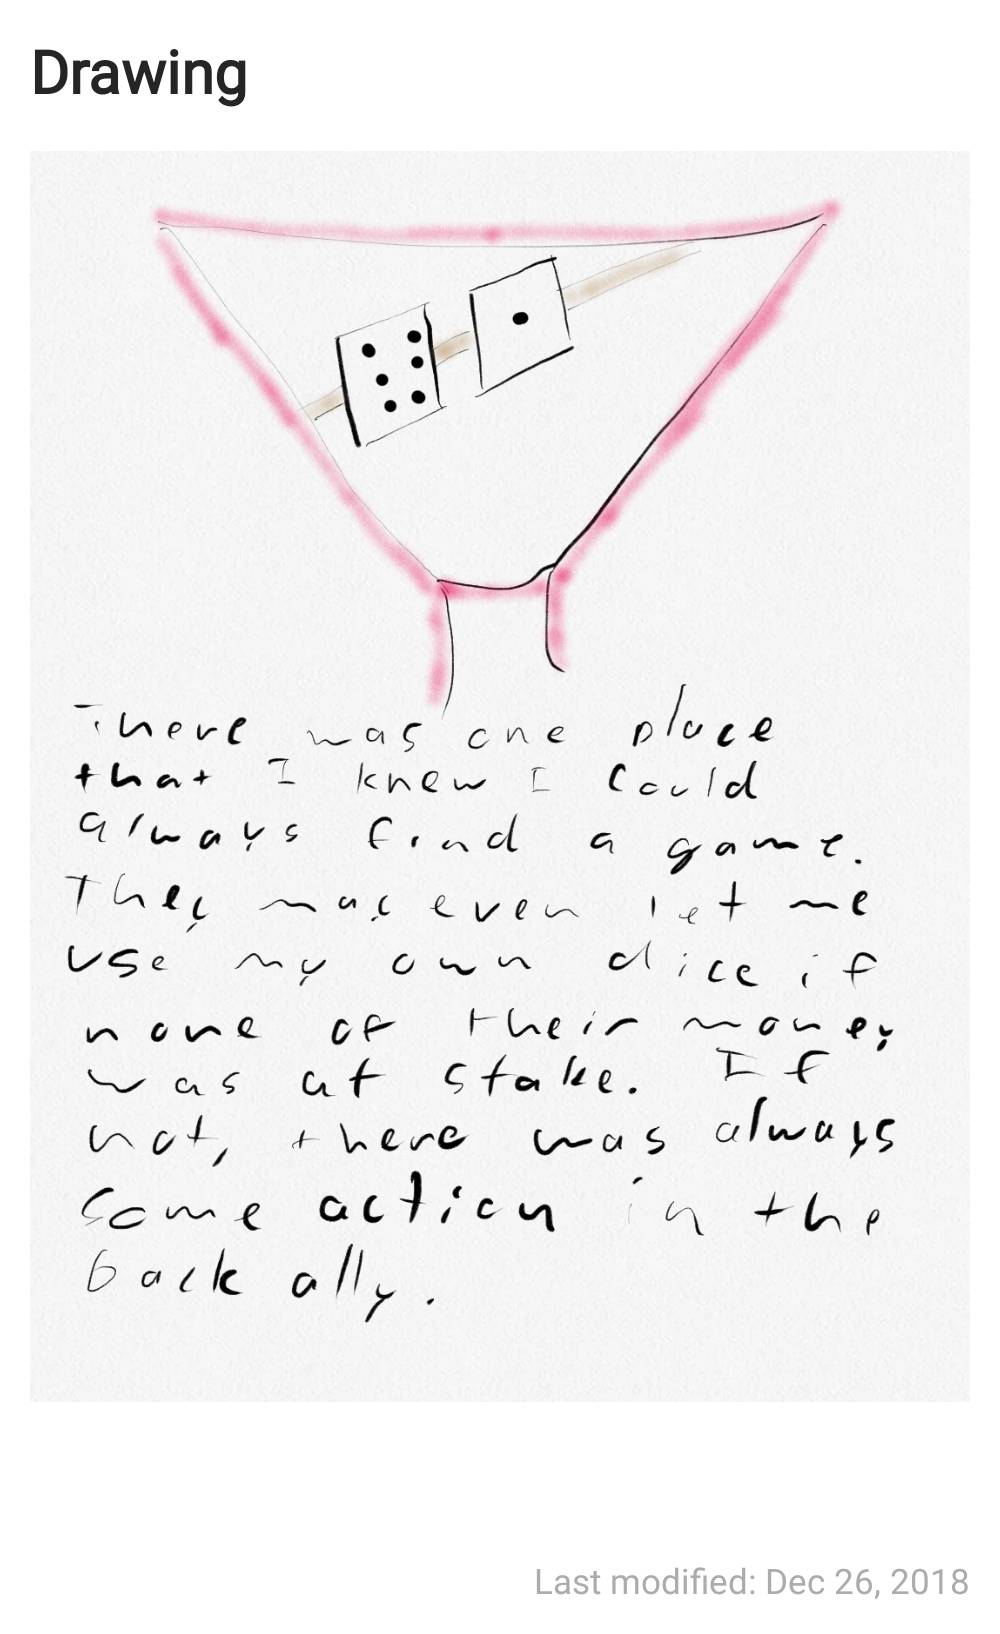 Drawing
There was one place
that I knew I could
always find a game.
They may even let me
use my own dice if
none of their money
was at stake. If
not, there was always
some action in the
back ally.
Last modified: Dec 26, 2018